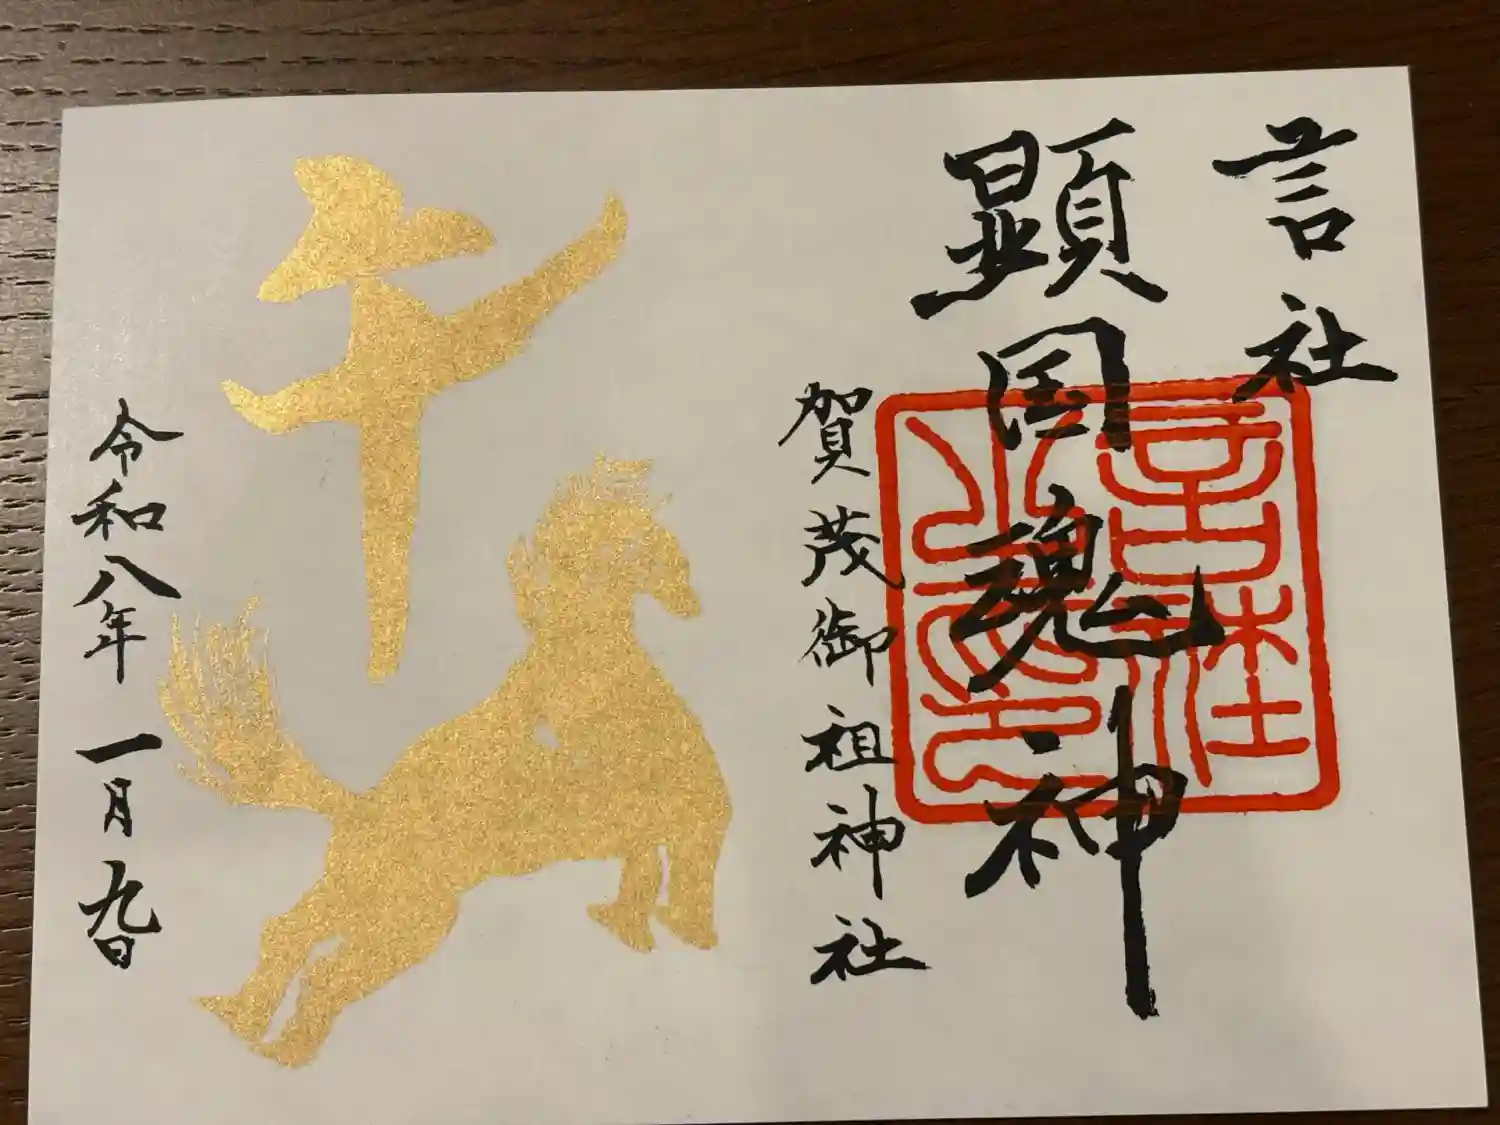 言社
顕国魂神
言社之印
賀茂御祖神社
午
令和八年一月九日